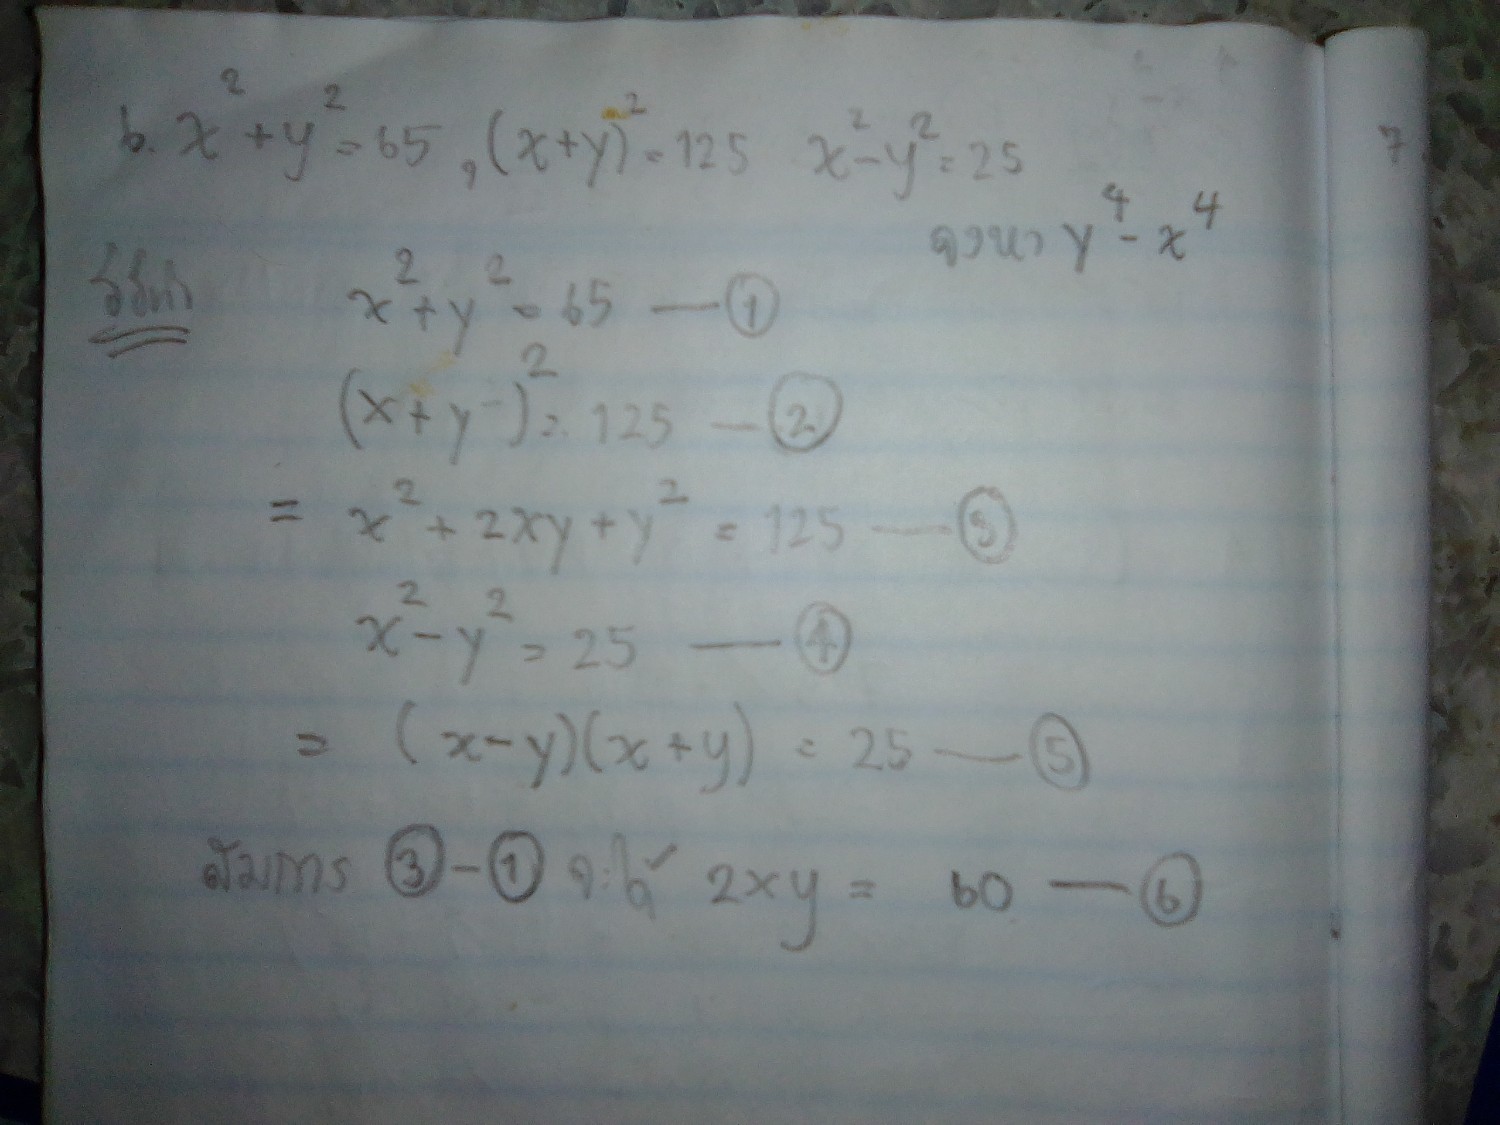 6. x²+y²=65, (x+y)²=125 x²-y²=25
จงหา y⁴-x⁴
วิธีทำ x²+y²=65 —①
(x+y)²=125 —②
= x²+2xy+y²=125 —③
x²-y²=25 —④
= (x-y)(x+y)=25 —⑤
สมการ ③-① จะได้ 2xy=60 —⑥
7